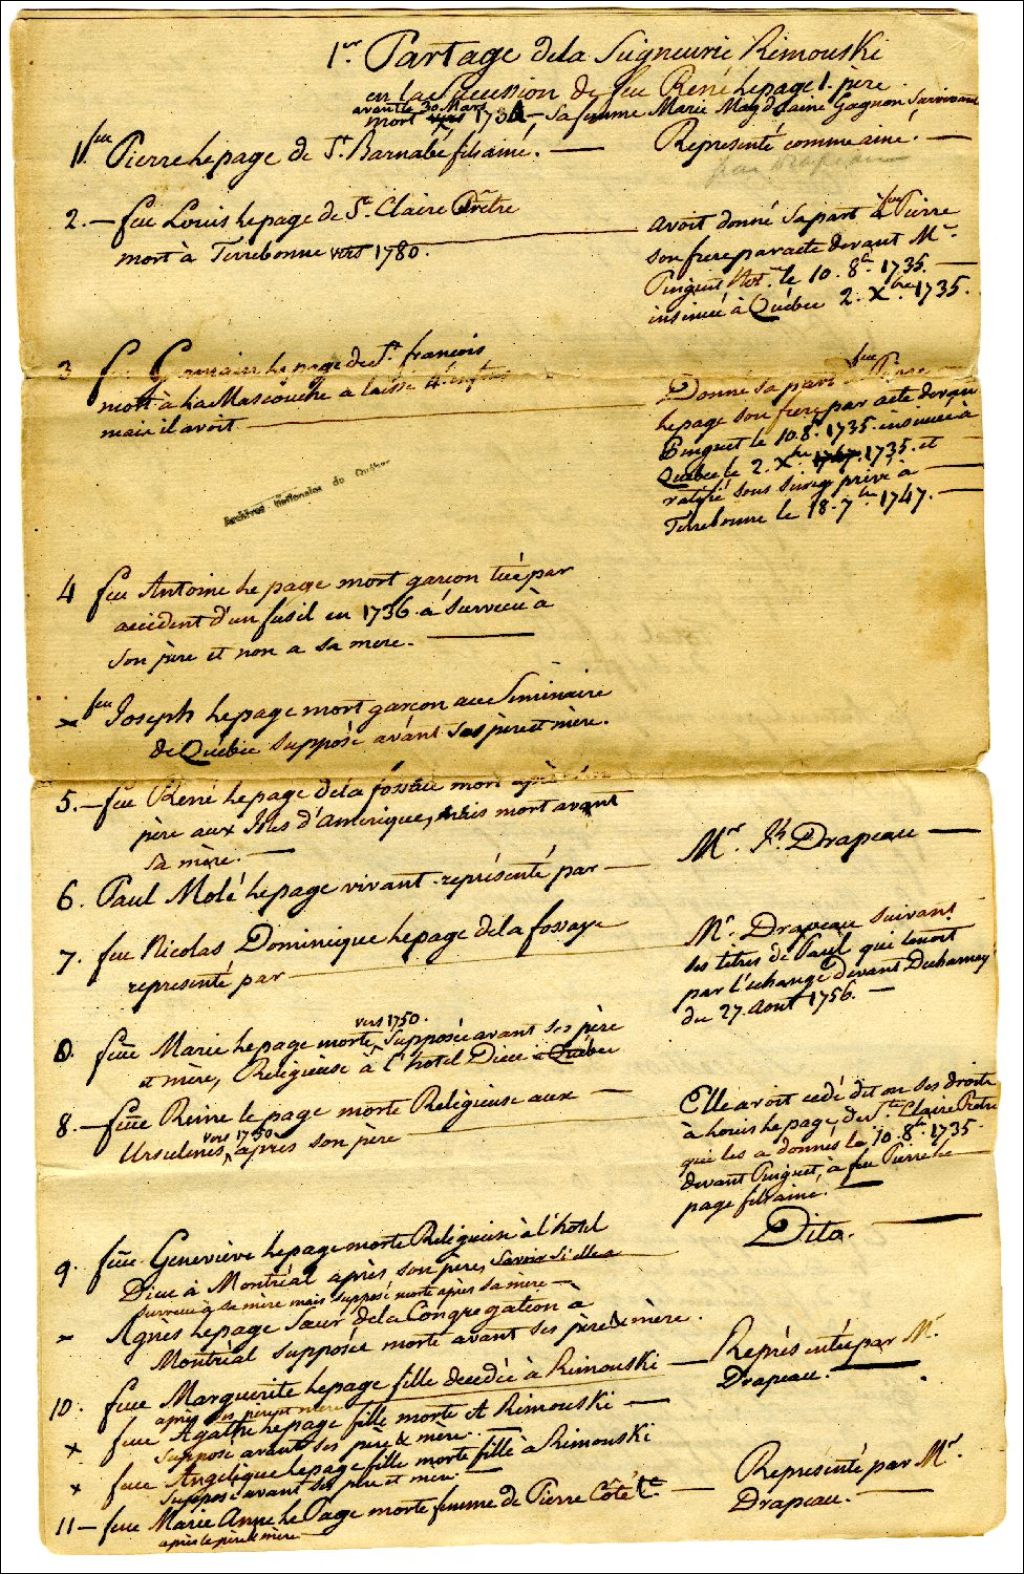 1er Partage dela Seigneurie Rimouski
en la Sucession de feu René Lepage 1. père
avant le 30 Mars
mort vers 1736 – Sa femme Marie Magdelaine Gagnon Survivant
1. feu Pierre Lepage de St. Barnabé fils ainé. — Representé comme ainé. —
par Drapeau
2. — feu Louis Lepage de Ste. Claire Prêtre
mort à Terrebonne vers 1780. —
avoit donné sa part à feu Pierre
son frere par acte devant Mr.
Pinguet Not. le 10. 8bre. 1735. —
insinué à Québec 2. Xbre. 1735.
3 feu Germain Lepage de St. françois
mort à La Mascouche a laissé 4.
mais il avoit —
Donné sa part à feu Pierre
Lepage son frere par acte devant
Pinguet le 10. 8bre 1735. insinuée à
Québec le 2. Xbre 1747. 1735. et
ratifié sous Seing privé à —
Terrebonne le 18. 7bre 1747. —
Archives Nationales du Québec
4 feu Antoine Le page mort garçon tué par
accident d'un fusil en 1736. a Survecu à
Son père et non a sa mere. —
x feu Joseph Lepage mort garçon au Seminaire
de Québec supposé avant Ses père et mère.
5. — feu René Lepage dela fossaie mort après son
père aux Isles d'amerique, mais mort avant
sa mère. —
6. Paul Molé Lepage vivant représenté par — Mr. Jh. Drapeau —
7. feu Nicolas Dominique Lepage dela fossaye
representé par —
Mr. Drapeau suivant
les titres de Paul qui tenoit
par l'echange devant Ducharnay
du 27. Aout 1756. —
vers 1750.
0. feue Marie Lepage morte, Supposée avant ses père
et mère, Religieuse à l'hotel Dieu à Québec
8. — feue Reine le page morte Religieuse aux —
vers 1750
Ursulines, après son père —
Elle avoit cedé dit on ses droits
à Louis Lepage de Ste. Claire Pretre
qui les a donnés le 10. 8bre. 1735.
devant Pinguet, à feu Pierre Le —
page fils ainé. —
9. feue Geneviève Lepage morte Religieuse à l'hotel
Dieu à Montréal après son père, savoir si elle a
survecu à sa mère mais supposé morte après sa mère —
Dito. —
– Agnès Lepage Sœur dela Congregation à
Montréal supposée morte avant ses père & mère.
10. feue Marguerite Lepage fille decedée à Rimouski — Représentée par Mr.
Drapeau. —
après ses père et mere
x feue Agathe Lepage fille morte A Rimouski —
Supposé avant ses père & mère. —
x feue Angelique Lepage fille morte fille à Rimouski
Supposé avant ses père et mere. —
11 — feue Marie Anne Le Page morte femme de Pierre Côté — Representé par Mr.
Drapeau. —
après le père & mère —